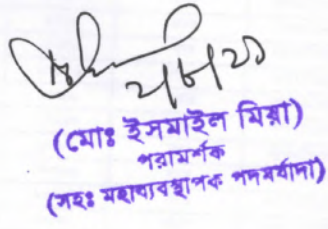 ২৭/৮/২৩
(মোঃ ইসমাইল মিয়া)
পরামর্শক
(সহঃ মহাব্যবস্থাপক পদমর্যাদা)